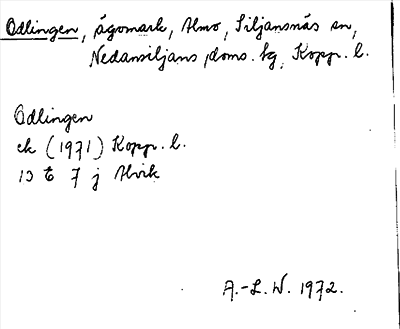 Ödlingen, ägomark, Almo, Siljansnäs sn,
Nedansiljans doms. tg, Kopp. l.
Ödlingen
ek (1971) Kopp. l.
13 E 7 j Alvik
A.-L. W. 1972.